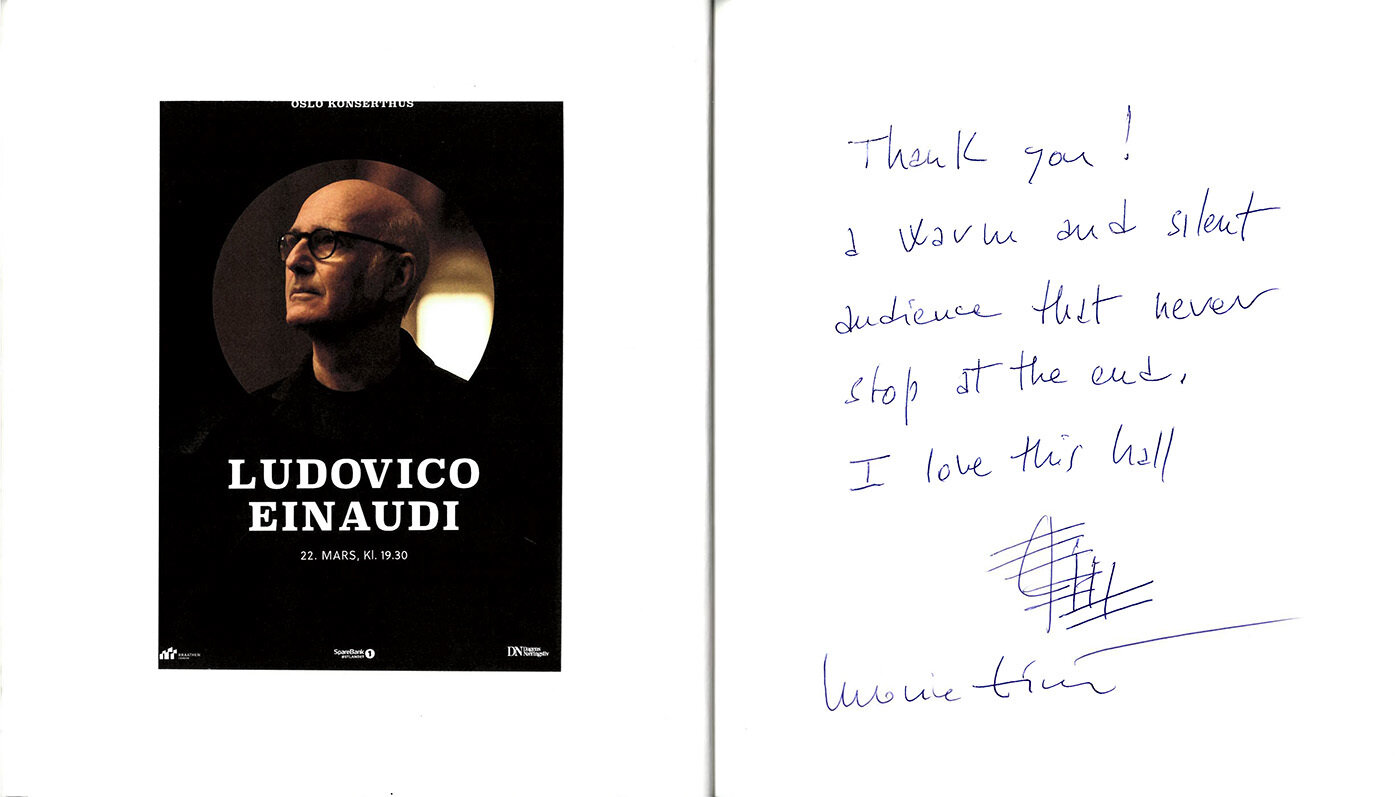 OSLO KONSERTHUS
LUDOVICO
EINAUDI
22. MARS, Kl. 19.30
SpareBank 1
ØSTLANDET
DN Dagens
Næringsliv
Thank you!
a warm and silent
audience that never
stop at the end.
I love this hall